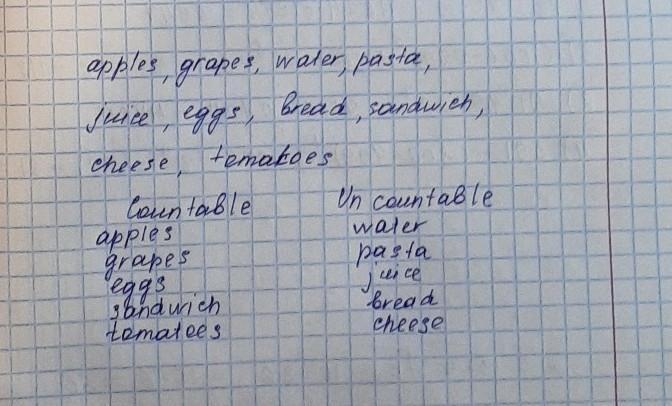 apples, grapes, water, pasta,
juice, eggs, bread, sandwich,
cheese, tomatoes
Countable Un countable
apples water
grapes pasta
eggs juice
sandwich bread
tomatoes cheese